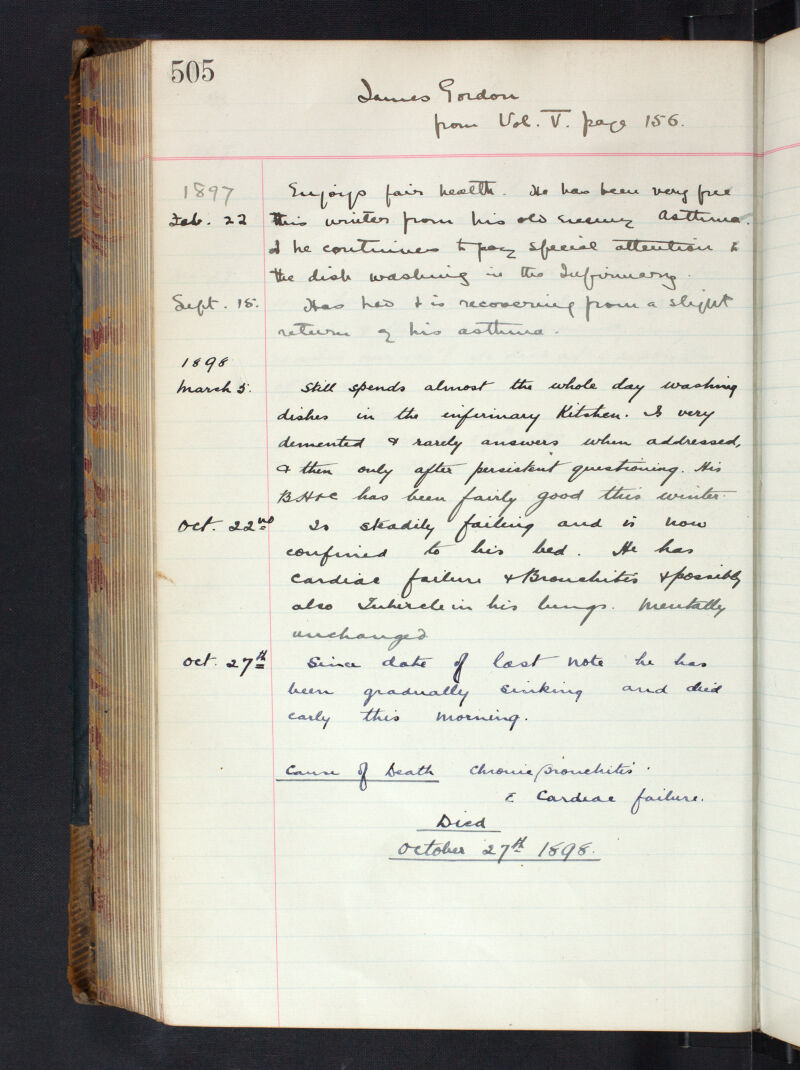 505
James Gordon
from Vol. V. page 156.
1897 Enjoys fair health. He has been very free
Feb. 22 this winter from his old enemy Asthma.
& he continues to pay special attention to
the dish washing in the Infirmary.
Sept. 15. Has had & is recovering from a slight
return of his asthma.
1898
March 5. Still spends almost the whole day washing
dishes in the infirmary Kitchen. Is very
demented & rarely answers when addressed,
& then only after persistent questioning. His
BH+C has been fairly good this winter.
Oct. 22nd Is steadily failing and is now
confined to his bed. He has
cardiac failure & Bronchitis & possibly
also Tubercle in his lungs. Mentally
unchanged
Oct. 27th Since date of last note he has
been gradually sinking and died
early this morning.
Cause of Death Chronic Bronchitis.
& Cardiac failure.
Died
October 27th 1898.